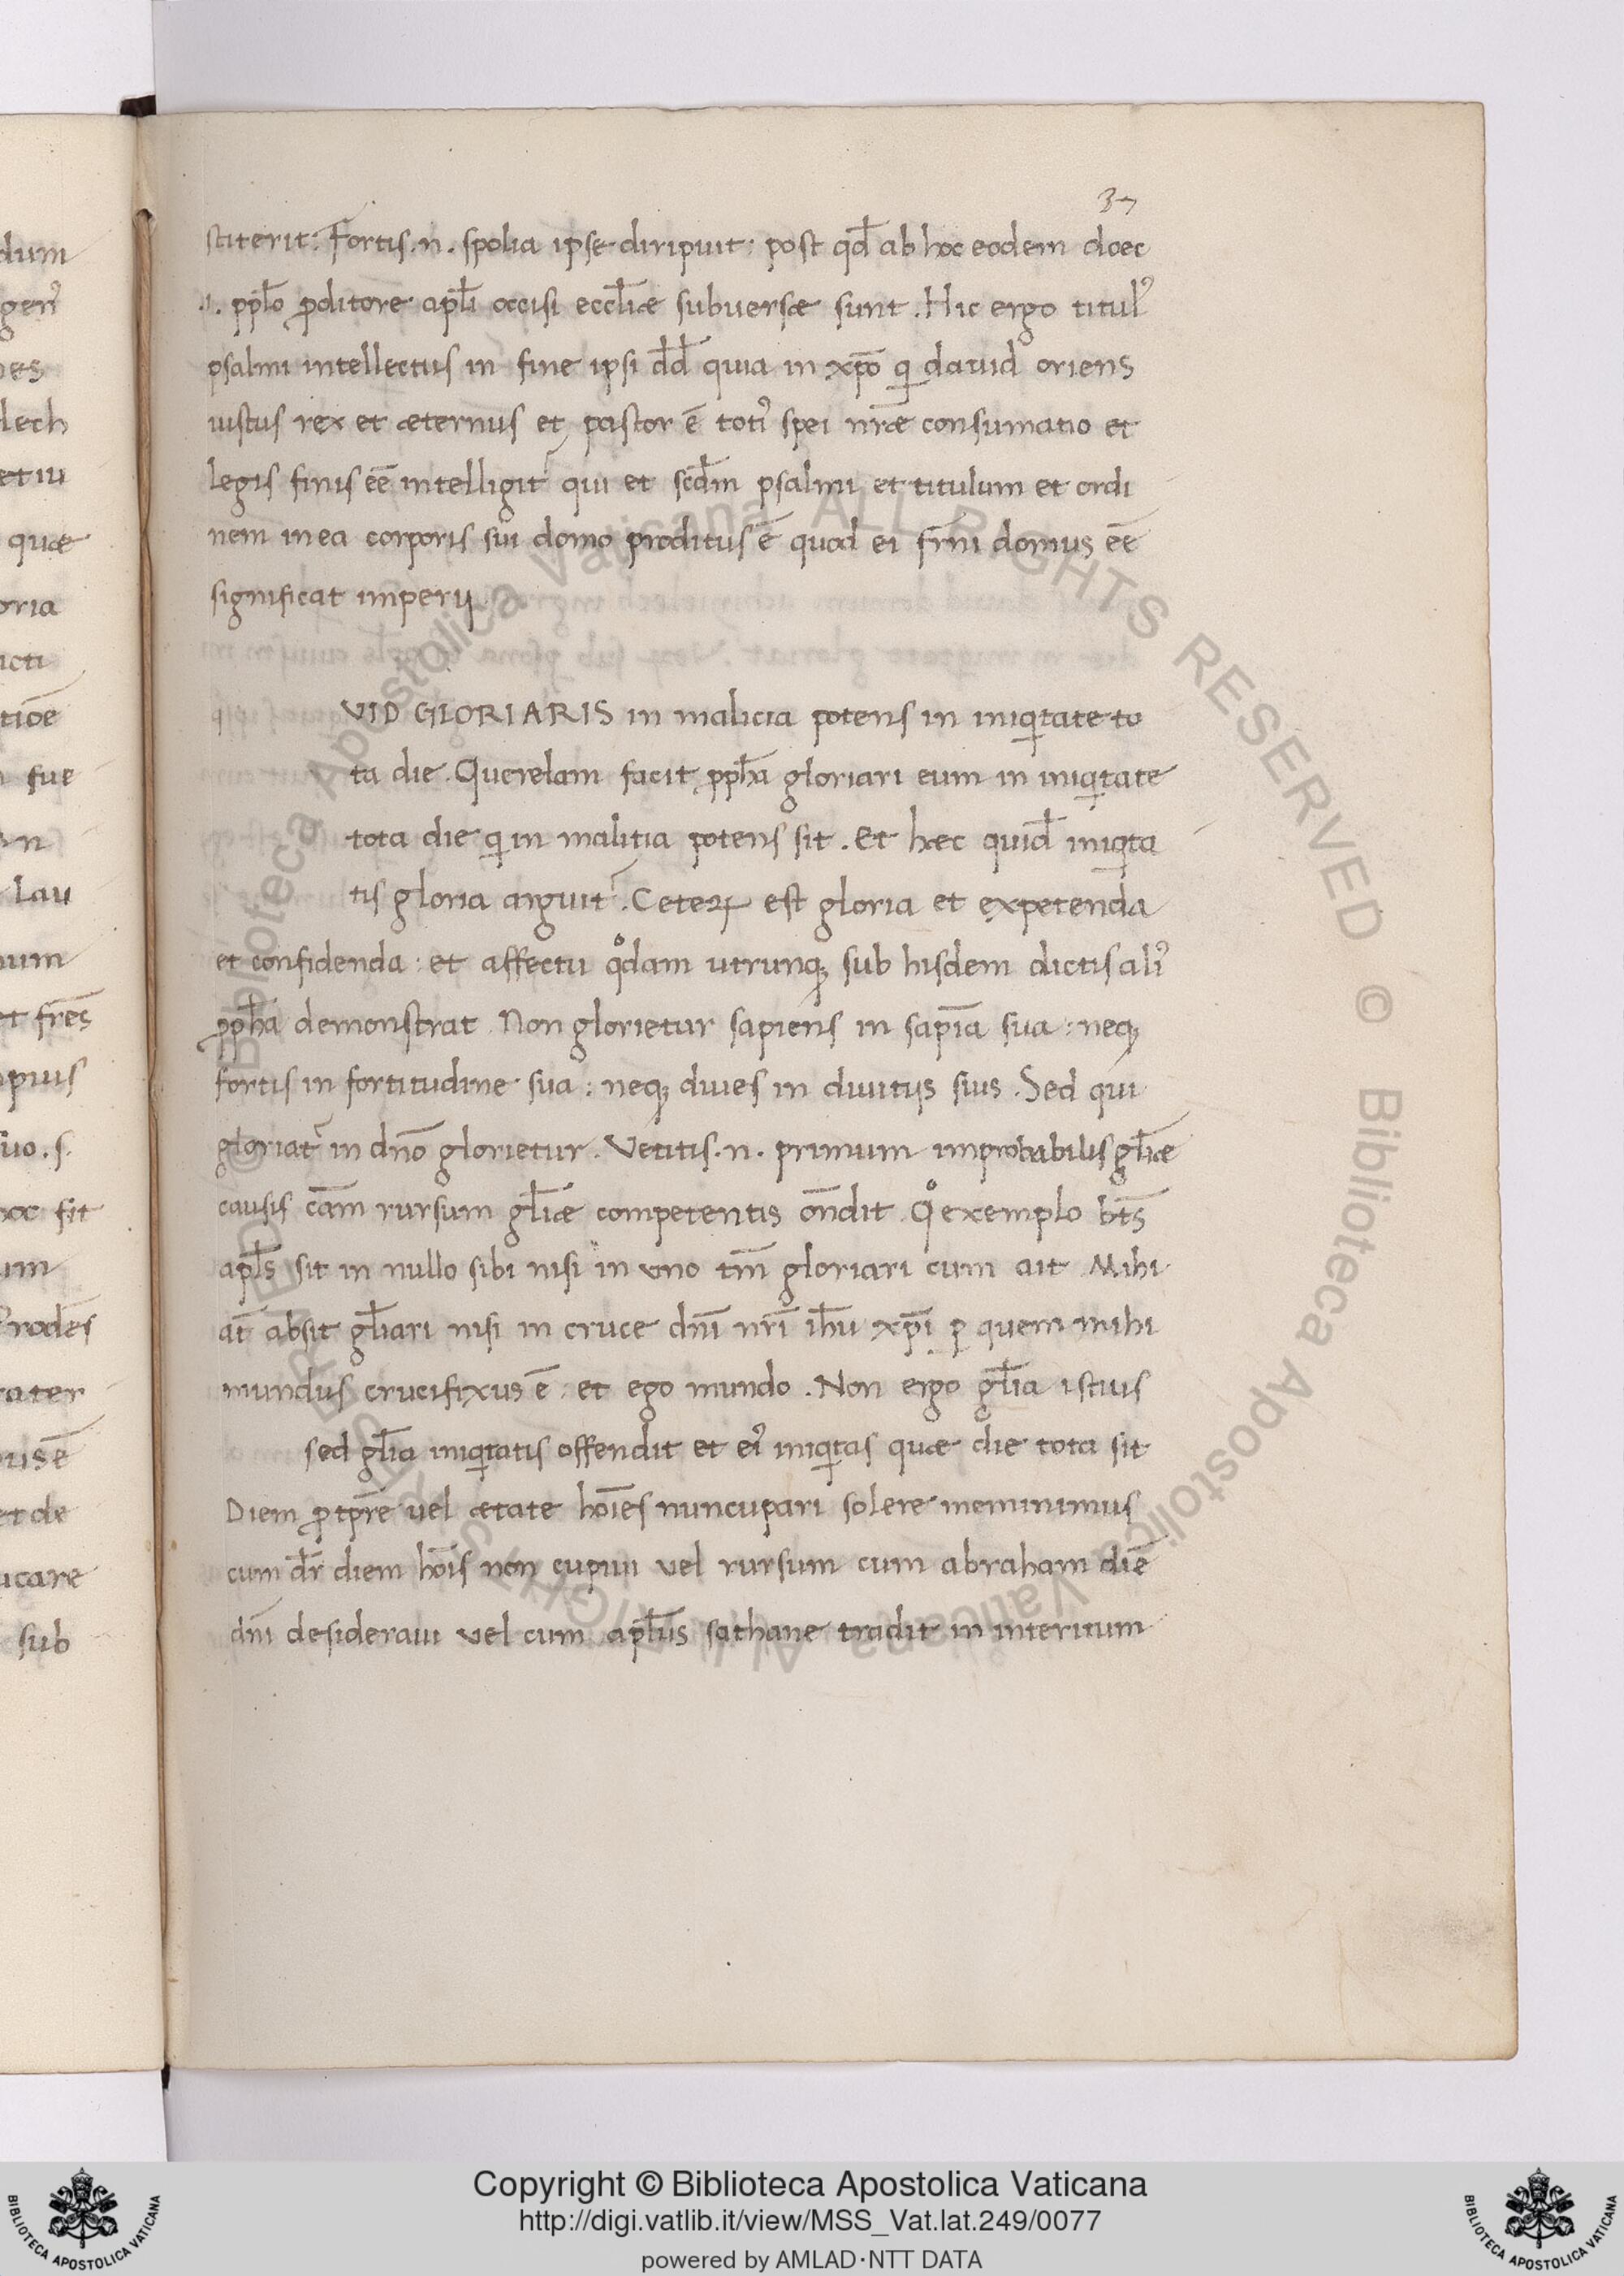 37
stiterit. Fortis .n. spolia ipse diripuit: post qd̄ ab hoc eodem doec
.i. pp̄lo ꝓditore apl̄i occisi eccl̄iæ subuersæ sunt. Hic ergo titulꝰ
psalmi intellectus in fine ipsi dd̄ quia in xp̄o qi dauid oriens
iustus rex et æternus et pastor ē totiꝰ spei nr̄æ consumatio et
legis finis eē intelligit᷑ qui et scd̄m psalmi et titulum et ordi
nem in ea corporis sui domo proditus ē quod ei fr̄ni domus eē
significat imperij
VID GLORIARIS in malicia potens in iniqitate to
ta die. Querelam facit ꝓph̄a gloriari eum in iniqitate
tota die qi in malitia potens sit. Et hæc quid̄ iniqita
tis gloria arguit᷑. Ceteꝝ est gloria et expetenda
et confidenda: et affectu qͦdam utrunqꝫ sub hisdem dictis aliꝰ
ꝓph̄a demonstrat. Non glorietur sapiens in sapīa sua: neqꝫ
fortis in fortitudine sua: neqꝫ diues in diuitijs suis. Sed qui
gloriat᷑ in dn̄o glorietur. Vetitis .n. primum improbabilis gl̄iæ
causis cām rursum gl̄iæ competentis on̄dit. Qͦ exemplo bt̄s
apl̄s sit in nullo sibi nisi in uno tm̄ gloriari cum ait Mihi
at̄ absit gl̄iari nisi in cruce dn̄i nr̄i ih̄u xp̄i ꝑ quem mihi
mundus crucifixus ē: et ego mundo. Non ergo gl̄ia istius
sed gl̄ia iniqitatis offendit et eiꝰ iniqitas quæ die tota sit
Diem ꝓ tp̄re uel ætate hōies nuncupari solere meminimus
cum dr̄ diem hōis non cupiui vel rursum cum abraham diē
dn̄i desiderauit vel cum apl̄us sathane tradit in interitum
dum
genꝰ
es
lech
et iu
quæ
oria
icti
tiōe
fue
n
Lau
num
et fr̄es
opus
suo .s.
hoc sit
um
rodēs
rater
uis ē
et de
icare
sub
Copyright © Biblioteca Apostolica Vaticana
http://digi.vatlib.it/view/MSS_Vat.lat.249/0077
powered by AMLAD·NTT DATA
BIBLIOTECA APOSTOLICA VATICANA
BIBLIOTECA APOSTOLICA VATICANA
© Biblioteca Apostolica Vaticana ALL RIGHTS RESERVED © Biblioteca Apostolica Vaticana ALL RIGHTS RESERVED